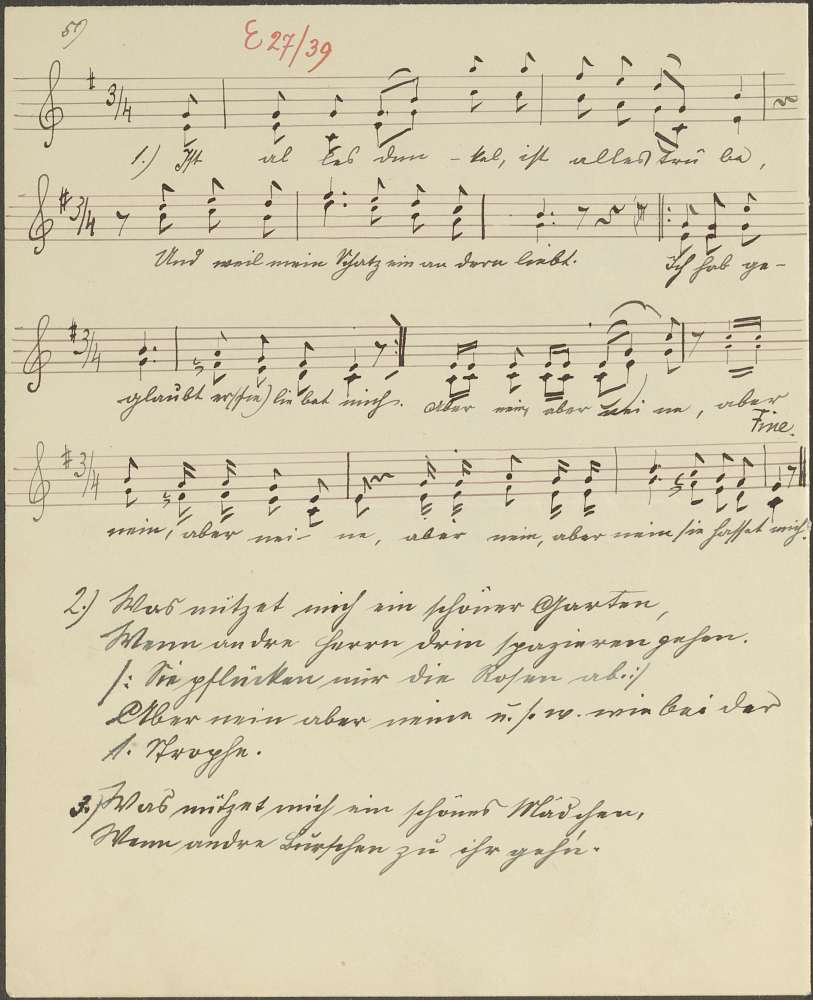 51)
E 27/39
3/4
1.) Ist al les dun - kel, ist alles trü be,
3/4
Und weil mein Schatz ein an dern liebt.
Ich hab ge-
3/4
glaubt er(sie) lie bet mich. Aber nein, aber nei ne, aber
Fine.
3/4
nein, aber nei- ne, aber nein, aber nein sie hasset mich.
2.) Was nützet mich ein schöner Garten,
Wenn andre Herrn drin spazieren gehen.
/: Sie pflücken mir die Rosen ab. :/
Aber nein aber neine u. s. w. wie bei der
1. Strophe.
3.) Was nützet mich ein schönes Mädchen,
Wenn andre Burschen zu ihr gehn.